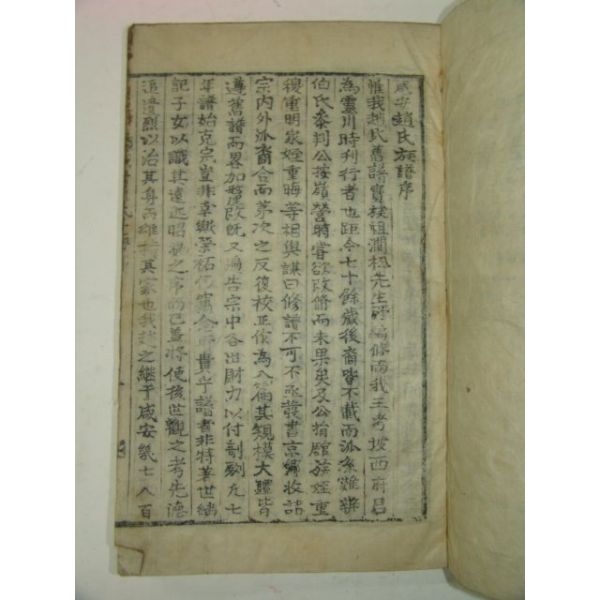 咸安趙氏族譜序
惟我趙氏舊譜實族祖澗松先生所編修而我王考坡西府君
為靈川時刊行者也距今七十餘歲後裔皆不載而派系難辨
伯氏參判公按嶺營時嘗欲改脩而未果矣及公捐館族姪重
稷重明家姪重晦等相與謀曰修譜不可不亟發書京鄉收諸
宗內外派裔合而第次之反復校正俗為八篇其規模大軆皆
遵舊譜而畧加增改既又遍告宗中各出財力以付剞劂九七
年譜始克完豈非幸歟譜者非特著世緖
記子女以職其遠近昭穆之序而已蓋將使後世觀之考先德
追遺烈以治其身而雄其家也我趙之繼于咸安幾七八百